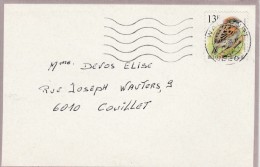 13F
Mme DEVOS ELISE
RUE JOSEPH WAUTERS, 9
6010 COUILLET